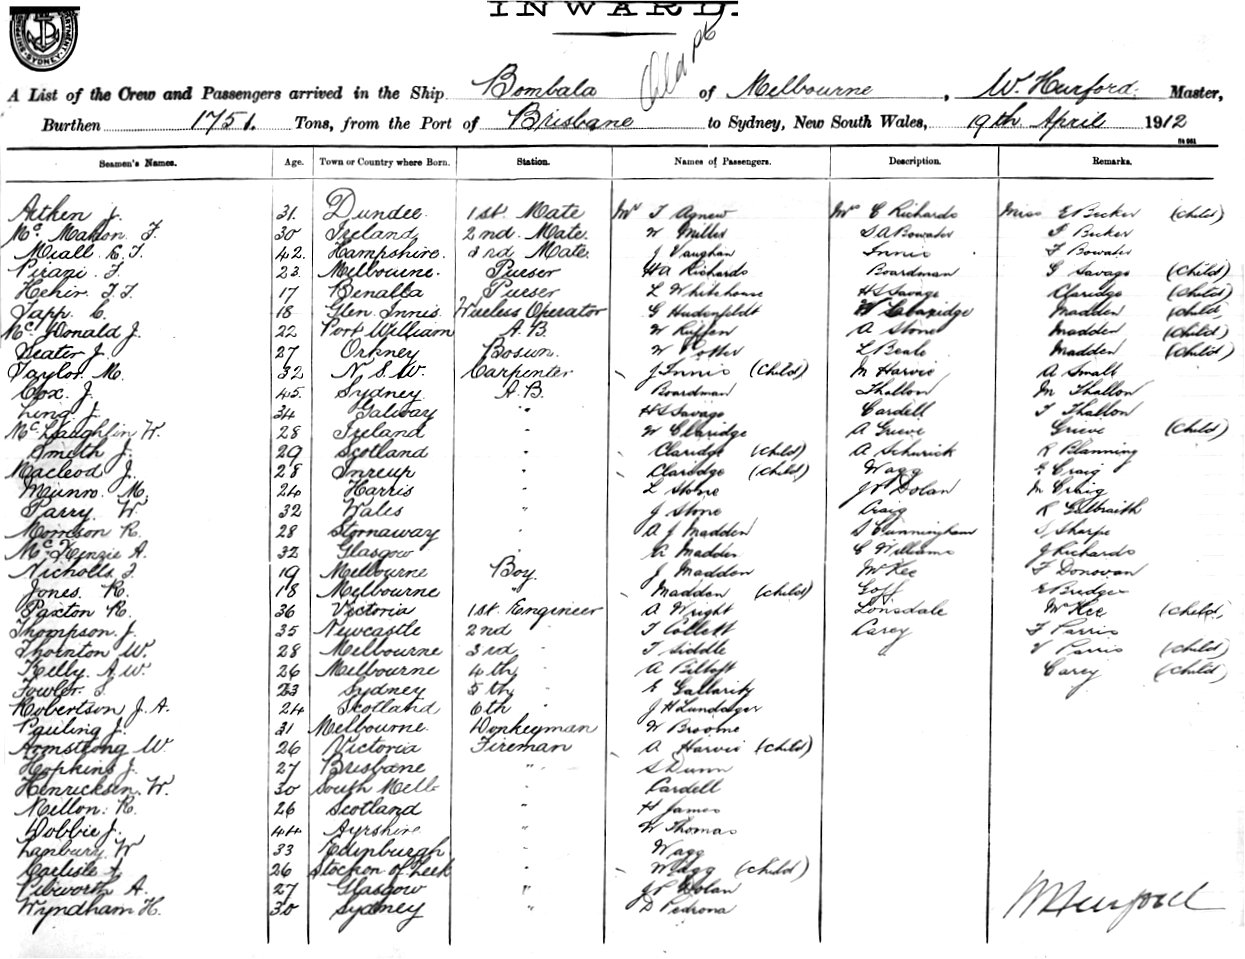 INWARD.
A List of the Crew and Passengers arrived in the Ship Bombala of Melbourne, W. Hurford. Master,
Burthen 1751. Tons, from the Port of Brisbane to Sydney, New South Wales, 19th April 1912
Seamen's Names. Age. Town or Country where Born. Station. Names of Passengers. Description. Remarks.
Aitken J. 31. Dundee. 1st. Mate Mr T Agnew Mrs C Richards Miss E Becker (Child)
Mc. Mahon. F. 30 Ireland 2nd. Mate. W Miller S A Bowater F Becker
Miall E. F. 42. Hampshire. 3rd Mate. J Vaughan Innis F Bowater
Pirani. F. 23. Melbourne. Purser H A Richards Boardman G Savage (Child)
Hehir. F. F. 17 Benalla Purser L Whitehouse H S Savage Claridge (Child)
Tapp. C. 18 Glen Innis Wireless Operator G Hudenfeldt W Claridge Madden (Child)
Mc. Donald J. 22 Port William A. B. W Ruffen A Stone Madden (Child)
Deater J. 27 Orkney Bosun. W Potter L Beale Madden (Child)
Taylor. M. 32 N. S. W. Carpenter J Innis (Child) M Harvie A Small
Cox. J. 45. Sydney A. B. Boardman Thallon M Thallon
Ling J. 34 Galway " H S Savage Cardell T Thallon
Mc. Laughlin W. 28 Ireland " W Claridge A Grieve Grieve (Child)
Smith J. 29 Scotland " Claridge (Child) A Schurick R Blanning
Macleod J. 28 " Claridge (Child) Wagg Craig
Munro. M. 24 Harris " L Stone J P Dolan M Craig
Parry. W. 32 Wales " J Stone Craig R Gilbraith
Morrison R. 28 Stornaway " A J Madden S Cunningham S Sharpe
Mc. Kenzie A. 32 Glasgow " G Madden C Williams J Richards
Nicholls. F. 19 Melbourne Boy. J Madden McKee F Donovan
Jones. R. 18 Melbourne " Madden (Child) Goff E Bridges
Paxton R. 36 Victoria 1st. Engineer A Wright Lonsdale McKee (Child)
Thompson. J. 35 Newcastle 2nd " T Collett Carey F Parris
Thornton W. 28 Melbourne 3rd " T Siddle V Parris (Child)
Kelly. A. W. 26 Melbourne 4th " A Biltoft Carey (Child)
Fowler. S. 23 Sydney 5th " E Gallarity
Robertson J. A. 24 Scotland 6th " J H Lundager
Pauling J. 31 Melbourne. Donkeyman W Broome
Armstrong W. 26 Victoria Fireman A Harvie (Child)
Hopkins J. 27 Brisbane " S Dunn
Henricksen. W. 30 South Melb. " Cardell
Mellon. R. 26 Scotland " H James
Dobbie J. 44 Ayrshire " W Thomas
Lanbury. W 33 Edinburgh " Wagg
Carlisle 26 Stockon of Teek " Wagg (Child)
Pibworth A. 27 Glasgow " J P Dolan
Wyndham H. 30 Sydney " D Pedrona
W Hurford